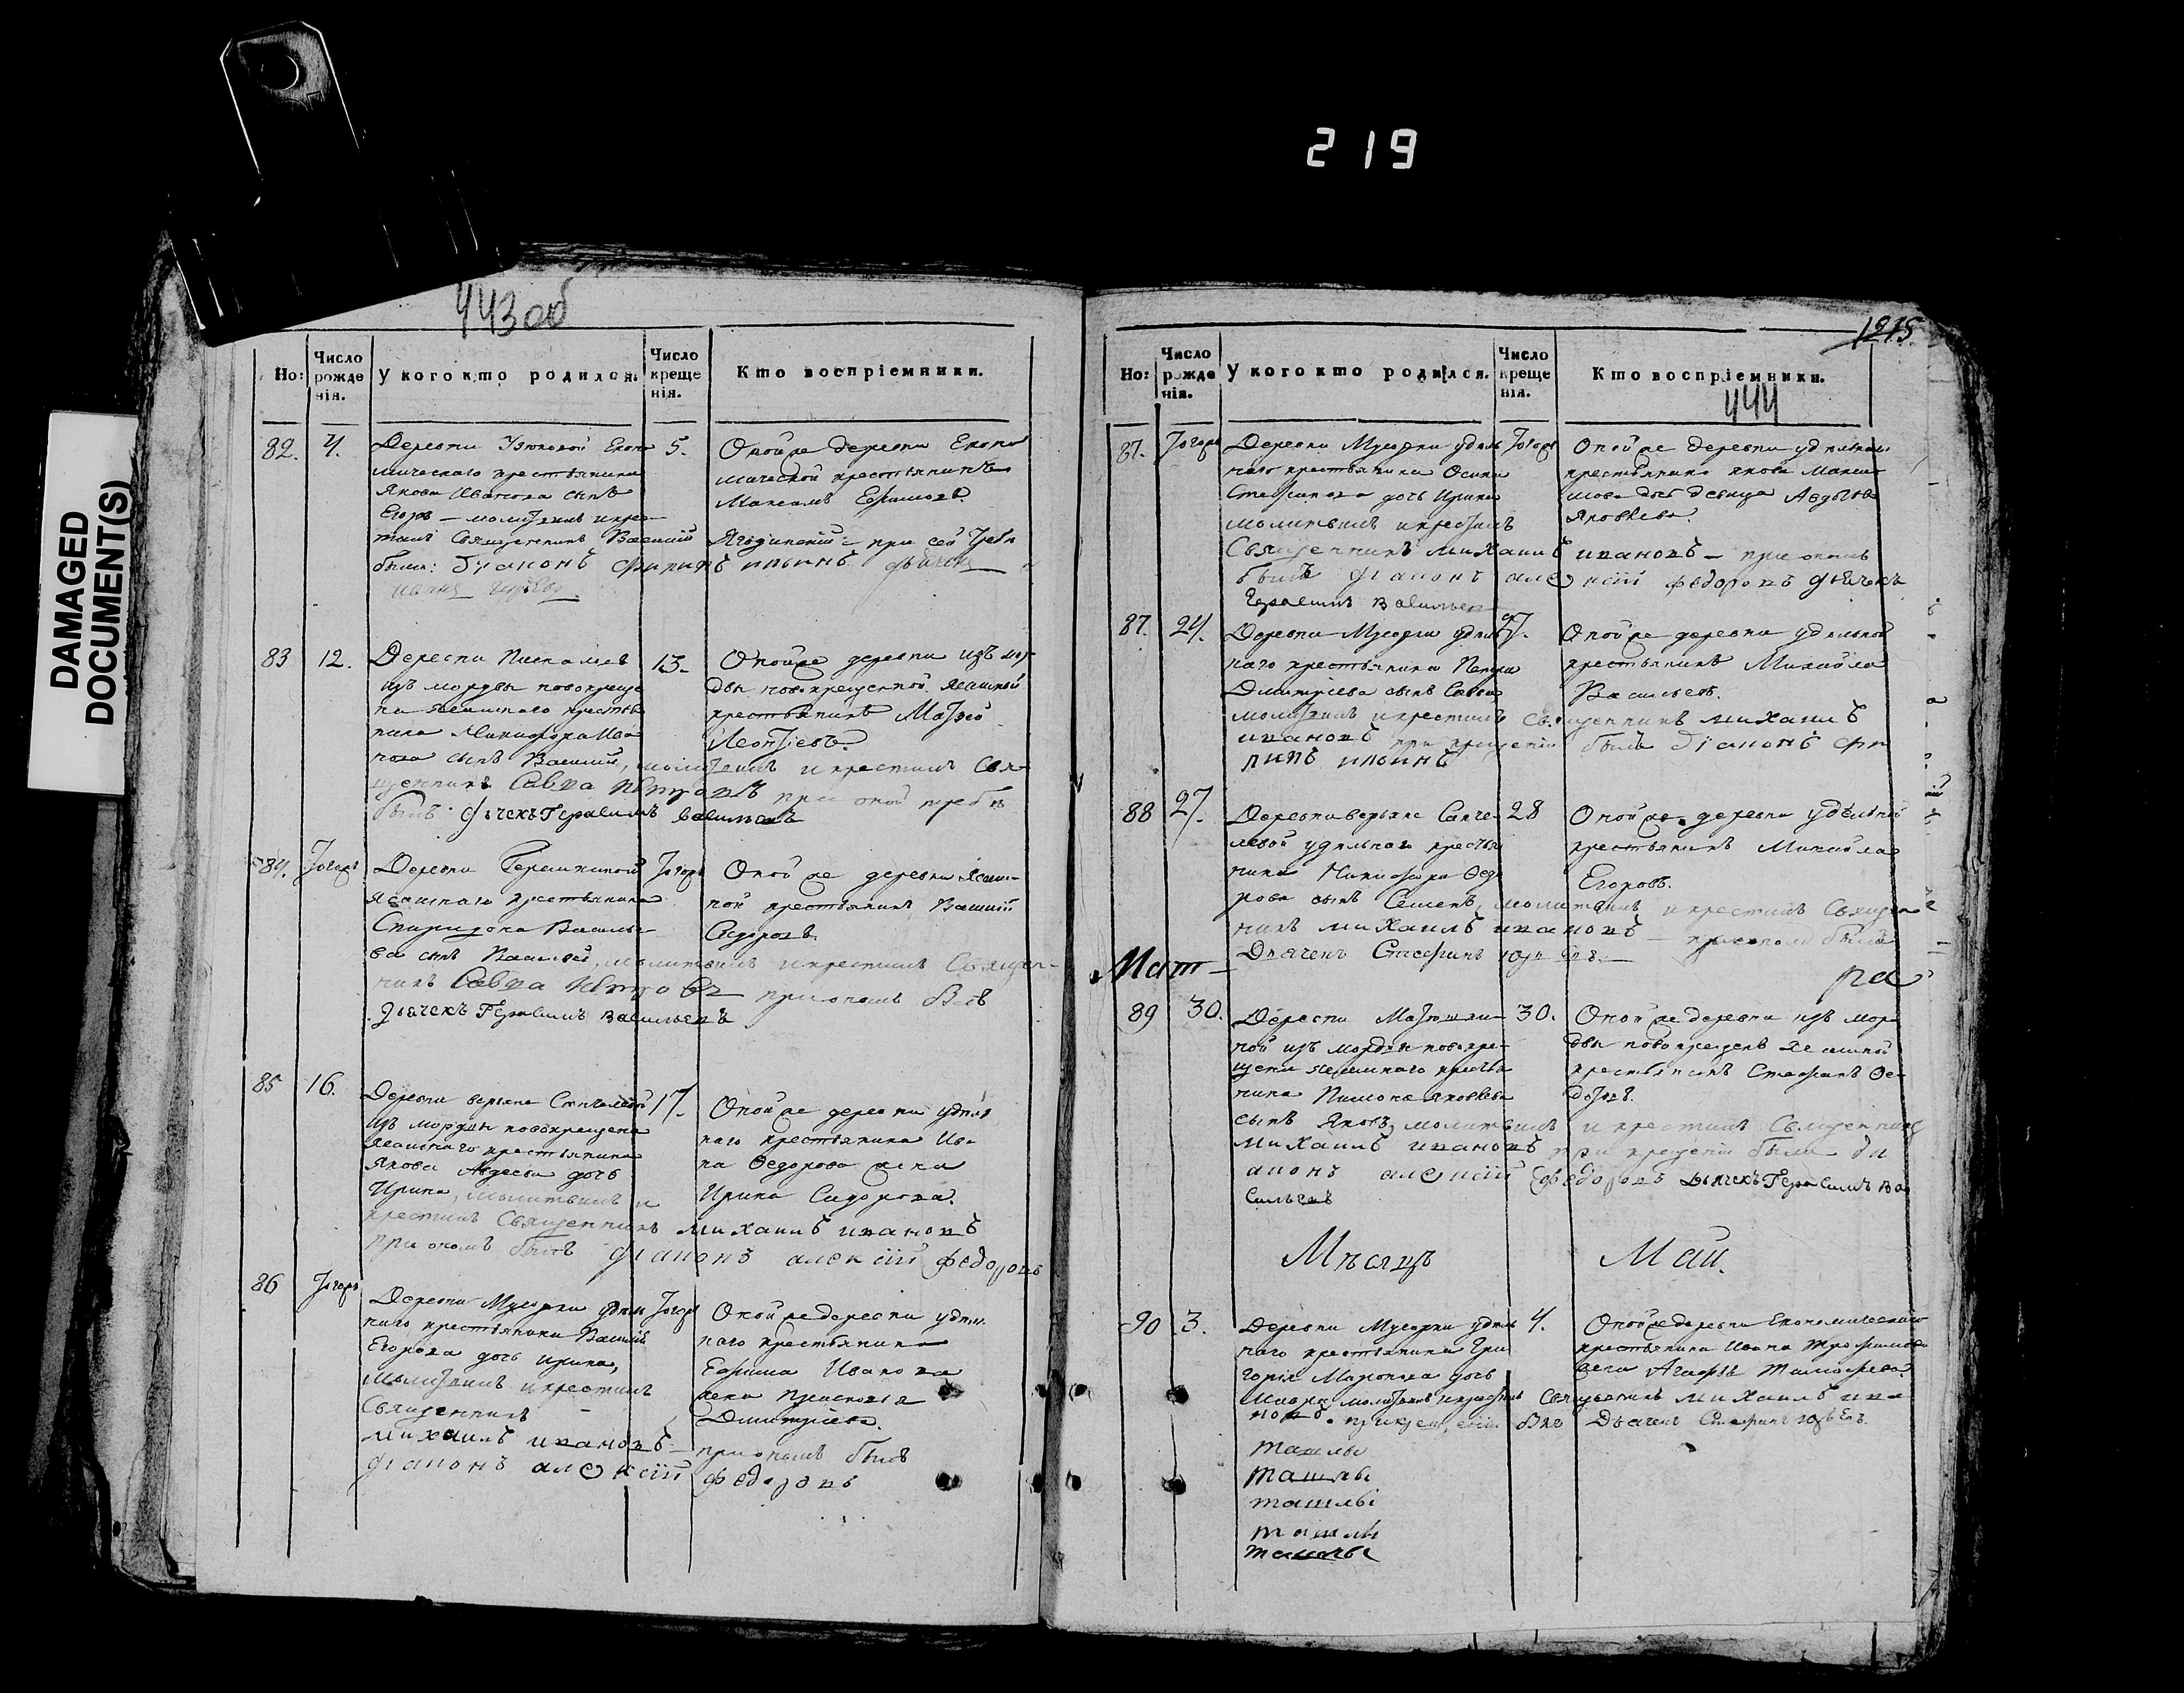 219
DAMAGED
DOCUMENT(S)
443 об
Но:
Число рожденія.
У кого кто родился.
Число крещенія.
Кто воспріемники.
82. 4. 5.
Деревни Узюковой Еконо
мическаго крестьянина
Якова Иванова сынъ
Егоръ — молитвилъ и крес
тилъ Священникъ Василий Ягодинский = при сей требѣ
были: діаконъ филипъ ильинъ
Оной же деревни Еконо
мической крестьянинъ
Максимъ Ефимовъ.
83 12. 13.
Деревни
изъ мордвы новокреще
на ясашнаго крестья
нина Никифора Ива
нова сынъ Василий, молитвилъ и крестилъ Свя
щенникъ Савва Петровъ при оной требѣ
былъ дьячекъ Герасимъ Васильевъ
Оной же деревни изъ мор
двы новокрещенной ясашный
крестьянинъ Матвей
Леонтіевъ.
84. Тогожъ Тогожъ
Деревни
ясашнаго крестьянина
Спиридона Василье
ва сынъ Василей, молитвилъ и крестилъ Священ
никъ Савва Петровъ при ономъ былъ
дьячекъ Герасимъ Васильевъ
Оной же деревни ясаш
ной крестьянинъ Василий
Сидоровъ.
85 16. 17.
Деревни верхне Санчелеевой
изъ мордвы новокрещена
ясашнаго крестьянина
Якова Авдеева дочь
Ирина, молитвилъ и
крестилъ Священникъ михаилъ ивановъ
при ономъ былъ діаконъ алексій федоровъ
Оной же деревни удѣль
наго крестьянина Ива
на Федорова жена
Ирина Сидорова.
86 Тогожъ Тогожъ
Деревни Мусорки удѣль
наго крестьянина Василья
Егорова дочь Ирина,
молитвилъ и крестилъ
Священникъ
михаилъ ивановъ — при ономъ былъ
діаконъ алексій федоровъ
Оной же деревни удѣль
наго крестьянина
Ефима Иванова
жена Прасковья
Дмитріева.
1215
444
Но:
Число рожденія.
У кого кто родился.
Число крещенія.
Кто воспріемники.
87. Тогожъ Тогожъ
Деревни Мусорки удѣль
наго крестьянина Осипа
Стефанова дочь Ирина
молитвилъ и крестилъ
Священникъ михаилъ ивановъ — при ономъ
былъ діаконъ алексій федоровъ дьячекъ
Герасимъ Васильевъ
Оной же деревни удѣльнаго
крестьянина Якова Макси
мова дочь девица Авдотья
Яковлева.
87. 24. 27.
Деревни Мусорки удѣль
наго крестьянина Петра
Дмитріева сынъ Савва
молитвилъ и крестилъ священникъ михаилъ
ивановъ при крещеніи былъ діаконъ фи
липъ ильинъ
Оной же деревни удѣльной
крестьянинъ Михайла
Васильевъ.
88 27. 28
Деревни верхне Санче
леевой удѣльнаго крестья
нина Никифора Федо
рова сынъ Семенъ, молитвилъ и крестилъ Священ
никъ михаилъ ивановъ — при ономъ былъ
Дьячекъ Стефанъ
Оной же деревни удѣльной
крестьянинъ Михайла
Егоровъ.
Мат — ра
89 30. 30.
Деревни Матюшки
ной изъ мордвы новокре
щена ясашнаго крестья
нина Пимона Яковлева
сынъ Яковъ, молитвилъ и крестилъ Священникъ
михаилъ ивановъ при крещеніи были ди
аконъ алексій федоровъ дьячекъ Герасимъ Ва
сильевъ
Оной же деревни изъ мор
двы новокрещенъ ясашной
крестьянинъ Стефанъ Фе
дотовъ.
Мѣсяцъ Май.
90 3. 4.
Деревни Мусорки удѣль
наго крестьянина Гри
горія Миронова дочь
Мавра молитвилъ и крестилъ Священникъ михаилъ ива
новъ. при крещеніи былъ Дьячекъ Стефанъ
Оной же деревни Економическаго
крестьянина Ивана Трофимова
жена Агафья Тимофеева.
ташлы
ташлы
ташлы
ташлы
ташлы